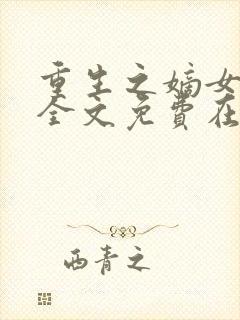 重生之嫡女
全文免費在
西青之